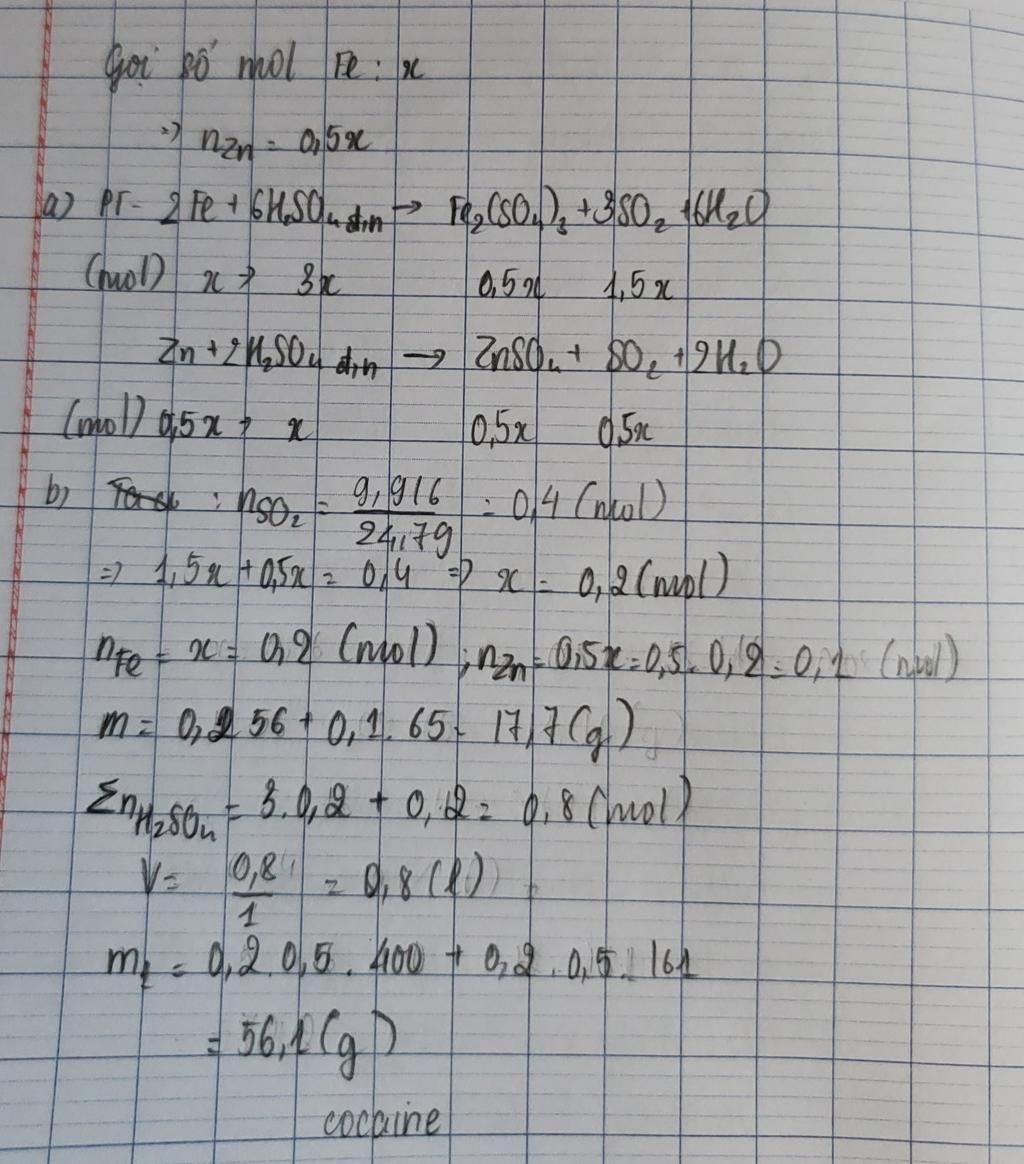 Gọi số mol Fe : x
=> nZn = 0,5x
a) PT- 2Fe + 6H₂SO₄ đ,n → Fe₂(SO₄)₃ + 3SO₂ + 6H₂O
(mol) x → 3x 0,5x 1,5x
Zn + 2H₂SO₄ đ,n → ZnSO₄ + SO₂ + 2H₂O
(mol) 0,5x → x 0,5x 0,5x
b) : nSO₂ = 9,916/24,79 = 0,4 (mol)
=> 1,5x + 0,5x = 0,4 => x = 0,2 (mol)
nFe = x = 0,2 (mol) ; nZn = 0,5x = 0,5. 0,2 = 0,1 (mol)
m = 0,2 56 + 0,1. 65 = 17,7 (g)
ΣnH₂SO₄ = 3.0,2 + 0,2 = 0,8 (mol)
V = 0,8/1 = 0,8 (l)
m = 0,2. 0,5. 400 + 0,2. 0,5. 161
= 56,1 (g)
cocaine